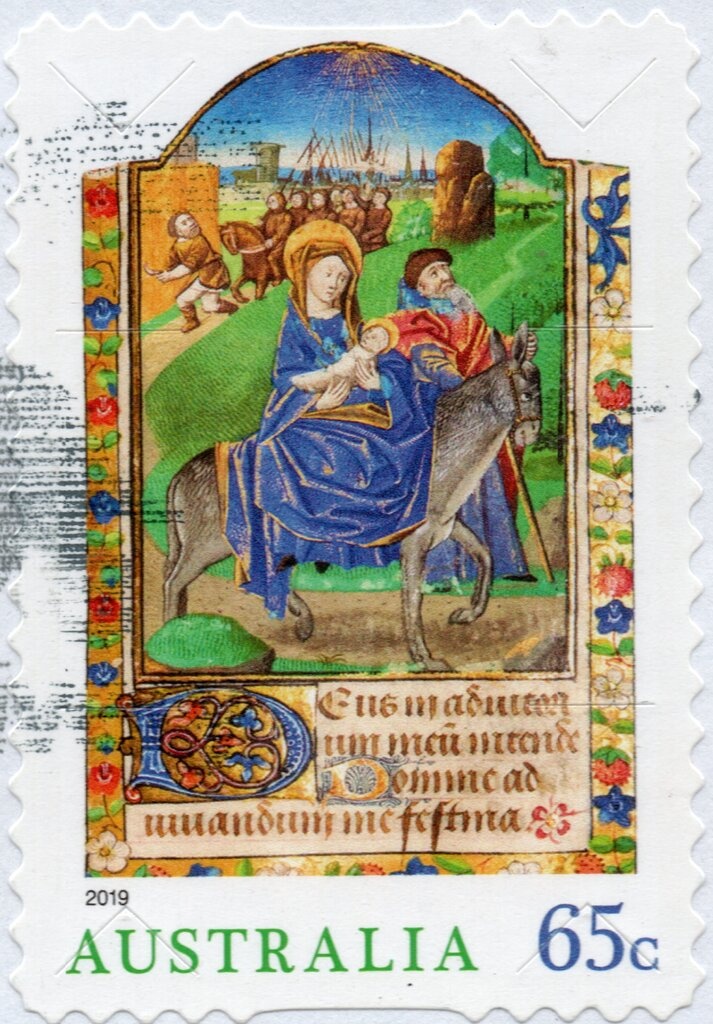 Deus in adiutori
um meū intende
Domine ad
iuuandum me festina.
2019
AUSTRALIA 65c